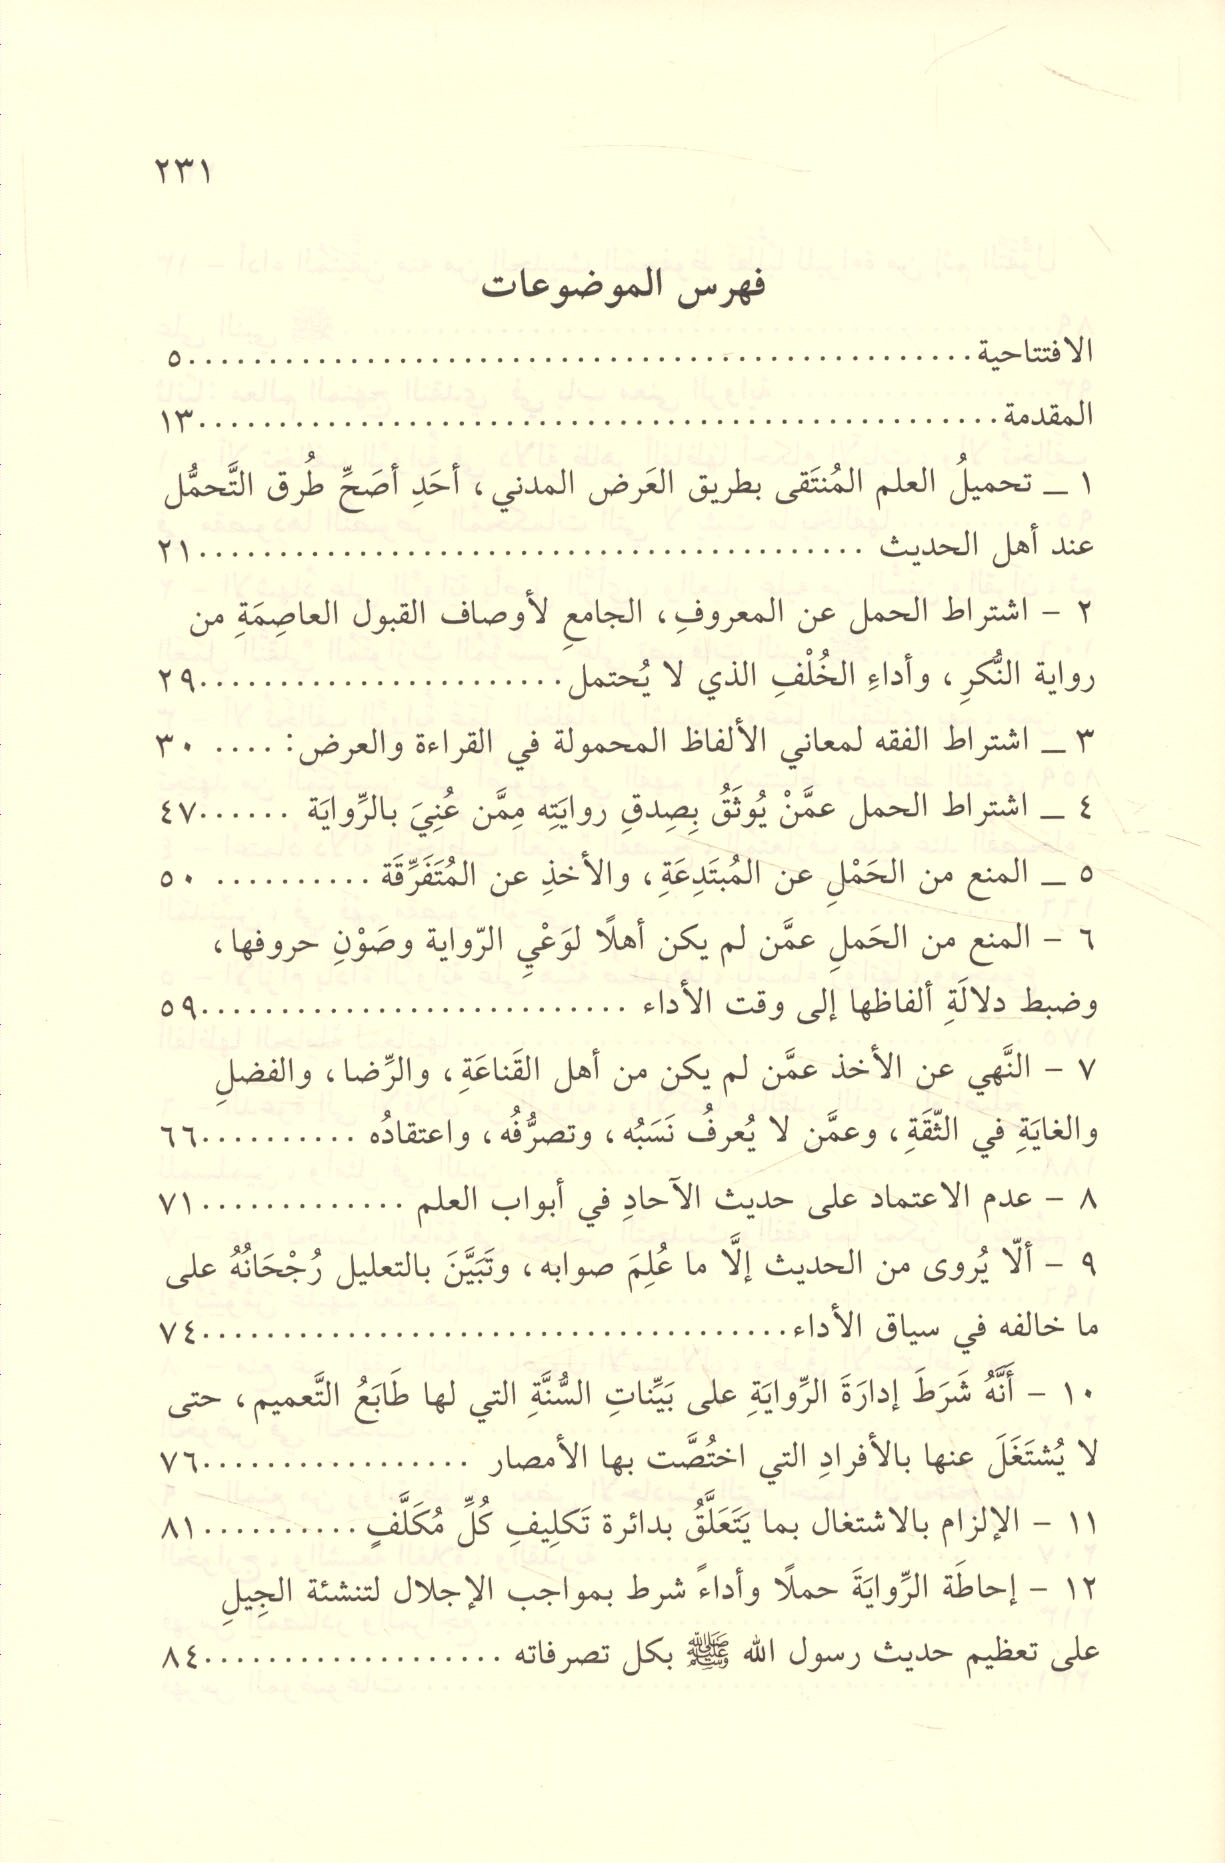 ٢٣١
فهرس الموضوعات
الافتتاحية..................................................٥
المقدمة..................................................١٣
١ ـ تحميلُ العلم المُنتَقى بطريق العَرض المدني، أحَدِ أصَحِّ طُرق التَّحمُّل
عند أهل الحديث ..........................................٢١
٢ - اشتراط الحمل عن المعروفِ، الجامعِ لأوصاف القبول العاصِمَةِ من
رواية النُّكرِ، وأداءِ الخُلْفِ الذي لا يُحتمل.......................٢٩
٣ ـ اشتراط الفقه لمعاني الألفاظ المحمولة في القراءة والعرض: .... ٣٠
٤ ـ اشتراط الحمل عمَّنْ يُوثَقُ بِصِدقِ روايَتِه مِمَّن عُنِيَ بالرِّوايَة ......٤٧
٥ ـ المنع من الحَمْلِ عن المُبتَدِعَةِ، والأخذِ عن المُتَفَرِّقَة .......... ٥٠
٦ - المنع من الحَملِ عمَّن لم يكن أهلًا لوَعْيِ الرّواية وصَوْنِ حروفها،
وضبط دلالَةِ ألفاظها إلى وقت الأداء ...........................٥٩
٧ - النَّهي عن الأخذ عمَّن لم يكن من أهل القَناعَةِ، والرِّضا، والفضلِ
والغايَةِ في الثّقَةِ، وعمَّن لا يُعرفُ نَسَبُه، وتصرُّفُه، واعتقادُه ..........٦٦
٨ - عدم الاعتماد على حديث الآحادِ في أبواب العلم .............٧١
٩ - ألّا يُروى من الحديث إلَّا ما عُلِمَ صوابه، وتَبَيَّنَ بالتعليل رُجْحَانُهُ على
ما خالفه في سياق الأداء.....................................٧٤
١٠ - أَنَّهُ شَرَطَ إدارَةَ الرِّوايَةِ على بَيِّناتِ السُّنَّةِ التي لها طَابَعُ التَّعميم، حتى
لا يُشتَغَلَ عنها بالأفرادِ التي اختُصَّت بها الأمصار .................٧٦
١١ - الإلزام بالاشتغال بما يَتَعَلَّقُ بدائرة تَكلِيفِ كُلِّ مُكَلَّفٍ ..........٨١
١٢ - إحاطَة الرِّوايَةَ حملًا وأداءً شرط بمواجب الإجلال لتنشئة الجِيلِ
على تعظيم حديث رسول الله ﷺ بكل تصرفاته ...................٨٤